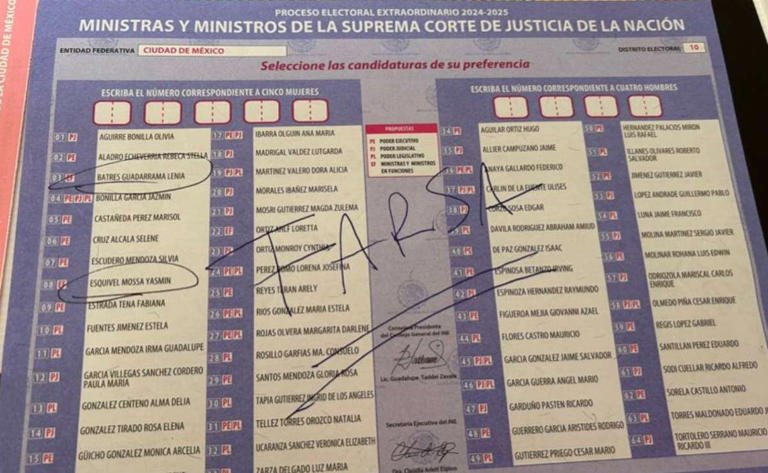 PROCESO ELECTORAL EXTRAORDINARIO 2024-2025
MINISTRAS Y MINISTROS DE LA SUPREMA CORTE DE JUSTICIA DE LA NACIÓN
ENTIDAD FEDERATIVA CIUDAD DE MÉXICO
DISTRITO ELECTORAL 10
Seleccione las candidaturas de su preferencia
ESCRIBA EL NÚMERO CORRESPONDIENTE A CINCO MUJERES
01 PJ AGUIRRE BONILLA OLIVIA
02 PE ALADRO ECHEVERRIA REBECA STELLA
03 EF BATRES GUADARRAMA LENIA
04 PE PJ PL BONILLA GARCIA JAZMIN
05 PE CASTAÑEDA PEREZ MARISOL
06 PE CRUZ ALCALA SELENE
07 PE ESCUDERO MENDOZA SILVIA
08 EF ESQUIVEL MOSSA YASMIN
09 PE ESTRADA TENA FABIANA
10 PL FUENTES JIMENEZ ESTELA
11 PL GARCIA MENDOZA IRMA GUADALUPE
12 PJ GARCIA VILLEGAS SANCHEZ CORDERO
PAULA MARIA
13 PL GONZALEZ CENTENO ALMA DELIA
14 PJ GONZALEZ TIRADO ROSA ELENA
15 PE GÜICHO GONZALEZ MONICA ARCELIA
17 PE PJ IBARRA OLGUIN ANA MARIA
18 PJ MADRIGAL VALDEZ LUTGARDA
19 PJ PL MARTINEZ VALERO DORA ALICIA
20 PJ MORALES IBAÑEZ MARISELA
21 PJ MOSRI GUTIERREZ MAGDA ZULEMA
22 EF ORTIZ AHLF LORETTA
23 ORTIZ MONROY CYNTHIA
24 PE PL PEREZ ROMO LORENA JOSEFINA
25 PE REYES TERAN ARELY
26 PE PL RIOS GONZALEZ MARIA ESTELA
27 PE PJ ROJAS OLVERA MARGARITA DARLENE
28 PL ROSILLO GARFIAS MA. CONSUELO
29 PL SANTOS MENDOZA GLORIA ROSA
30 PL TAPIA GUTIERREZ INGRID DE LOS ANGELES
31 PE PJ TELLEZ TORRES OROZCO NATALIA
32 PL UCARANZA SANCHEZ VERONICA ELIZABETH
ZARZA DELGADO LUZ MARIA
PROPUESTAS
PE PODER EJECUTIVO
PJ PODER JUDICIAL
PL PODER LEGISLATIVO
EF MINISTRAS Y MINISTROS
EN FUNCIONES
FARSA
Consejera Presidenta
del Consejo General del INE
Lic. Guadalupe Taddei Zavala
Secretaria Ejecutiva del INE
Dra. Claudia Arlett Espino
ESCRIBA EL NÚMERO CORRESPONDIENTE A CUATRO HOMBRES
34 PE AGUILAR ORTIZ HUGO
35 PJ ALLIER CAMPUZANO JAIME
36 PE PL ANAYA GALLARDO FEDERICO
37 PJ PL CARLIN DE LA FUENTE ULISES
38 CORZO SOSA EDGAR
DAVILA RODRIGUEZ ABRAHAM AMIUD
40 DE PAZ GONZALEZ ISAAC
41 PL ESPINOSA BETANZO IRVING
42 ESPINOZA HERNANDEZ RAYMUNDO
43 PL FIGUEROA MEJIA GIOVANNI AZAEL
44 PL FLORES CASTRO MAURICIO
45 PJ PL GARCIA GONZALEZ JAIME SALVADOR
46 PJ PL GARCIA GUERRA ANGEL MARIO
47 PJ GARDUÑO PASTEN RICARDO
48 PE GUERRERO GARCIA ARISTIDES RODRIGO
49 PL GUTIERREZ PRIEGO CESAR MARIO
50 PL HERNANDEZ PALACIOS MIRON
LUIS RAFAEL
51 PL ILLANES OLIVARES ROBERTO
SALVADOR
52 JIMENEZ GUTIERREZ JAVIER
53 PJ LOPEZ ANDRADE GUILLERMO PABLO
54 PL LUNA JAIME FRANCISCO
55 PJ MOLINA MARTINEZ SERGIO JAVIER
56 PJ MOLINAR ROHANA LUIS EDWIN
57 PJ ODRIOZOLA MARISCAL CARLOS
ENRIQUE
58 PJ PL OLMEDO PIÑA CESAR ENRIQUE
59 PE REGIS LOPEZ GABRIEL
60 PE SANTILLAN PEREZ EDUARDO
61 PJ SODI CUELLAR RICARDO ALFREDO
62 PJ SORELA CASTILLO ANTONIO
63 PL TORRES MALDONADO EDUARDO
64 PJ TORTOLERO SERRANO MAURICIO
RICARDO III